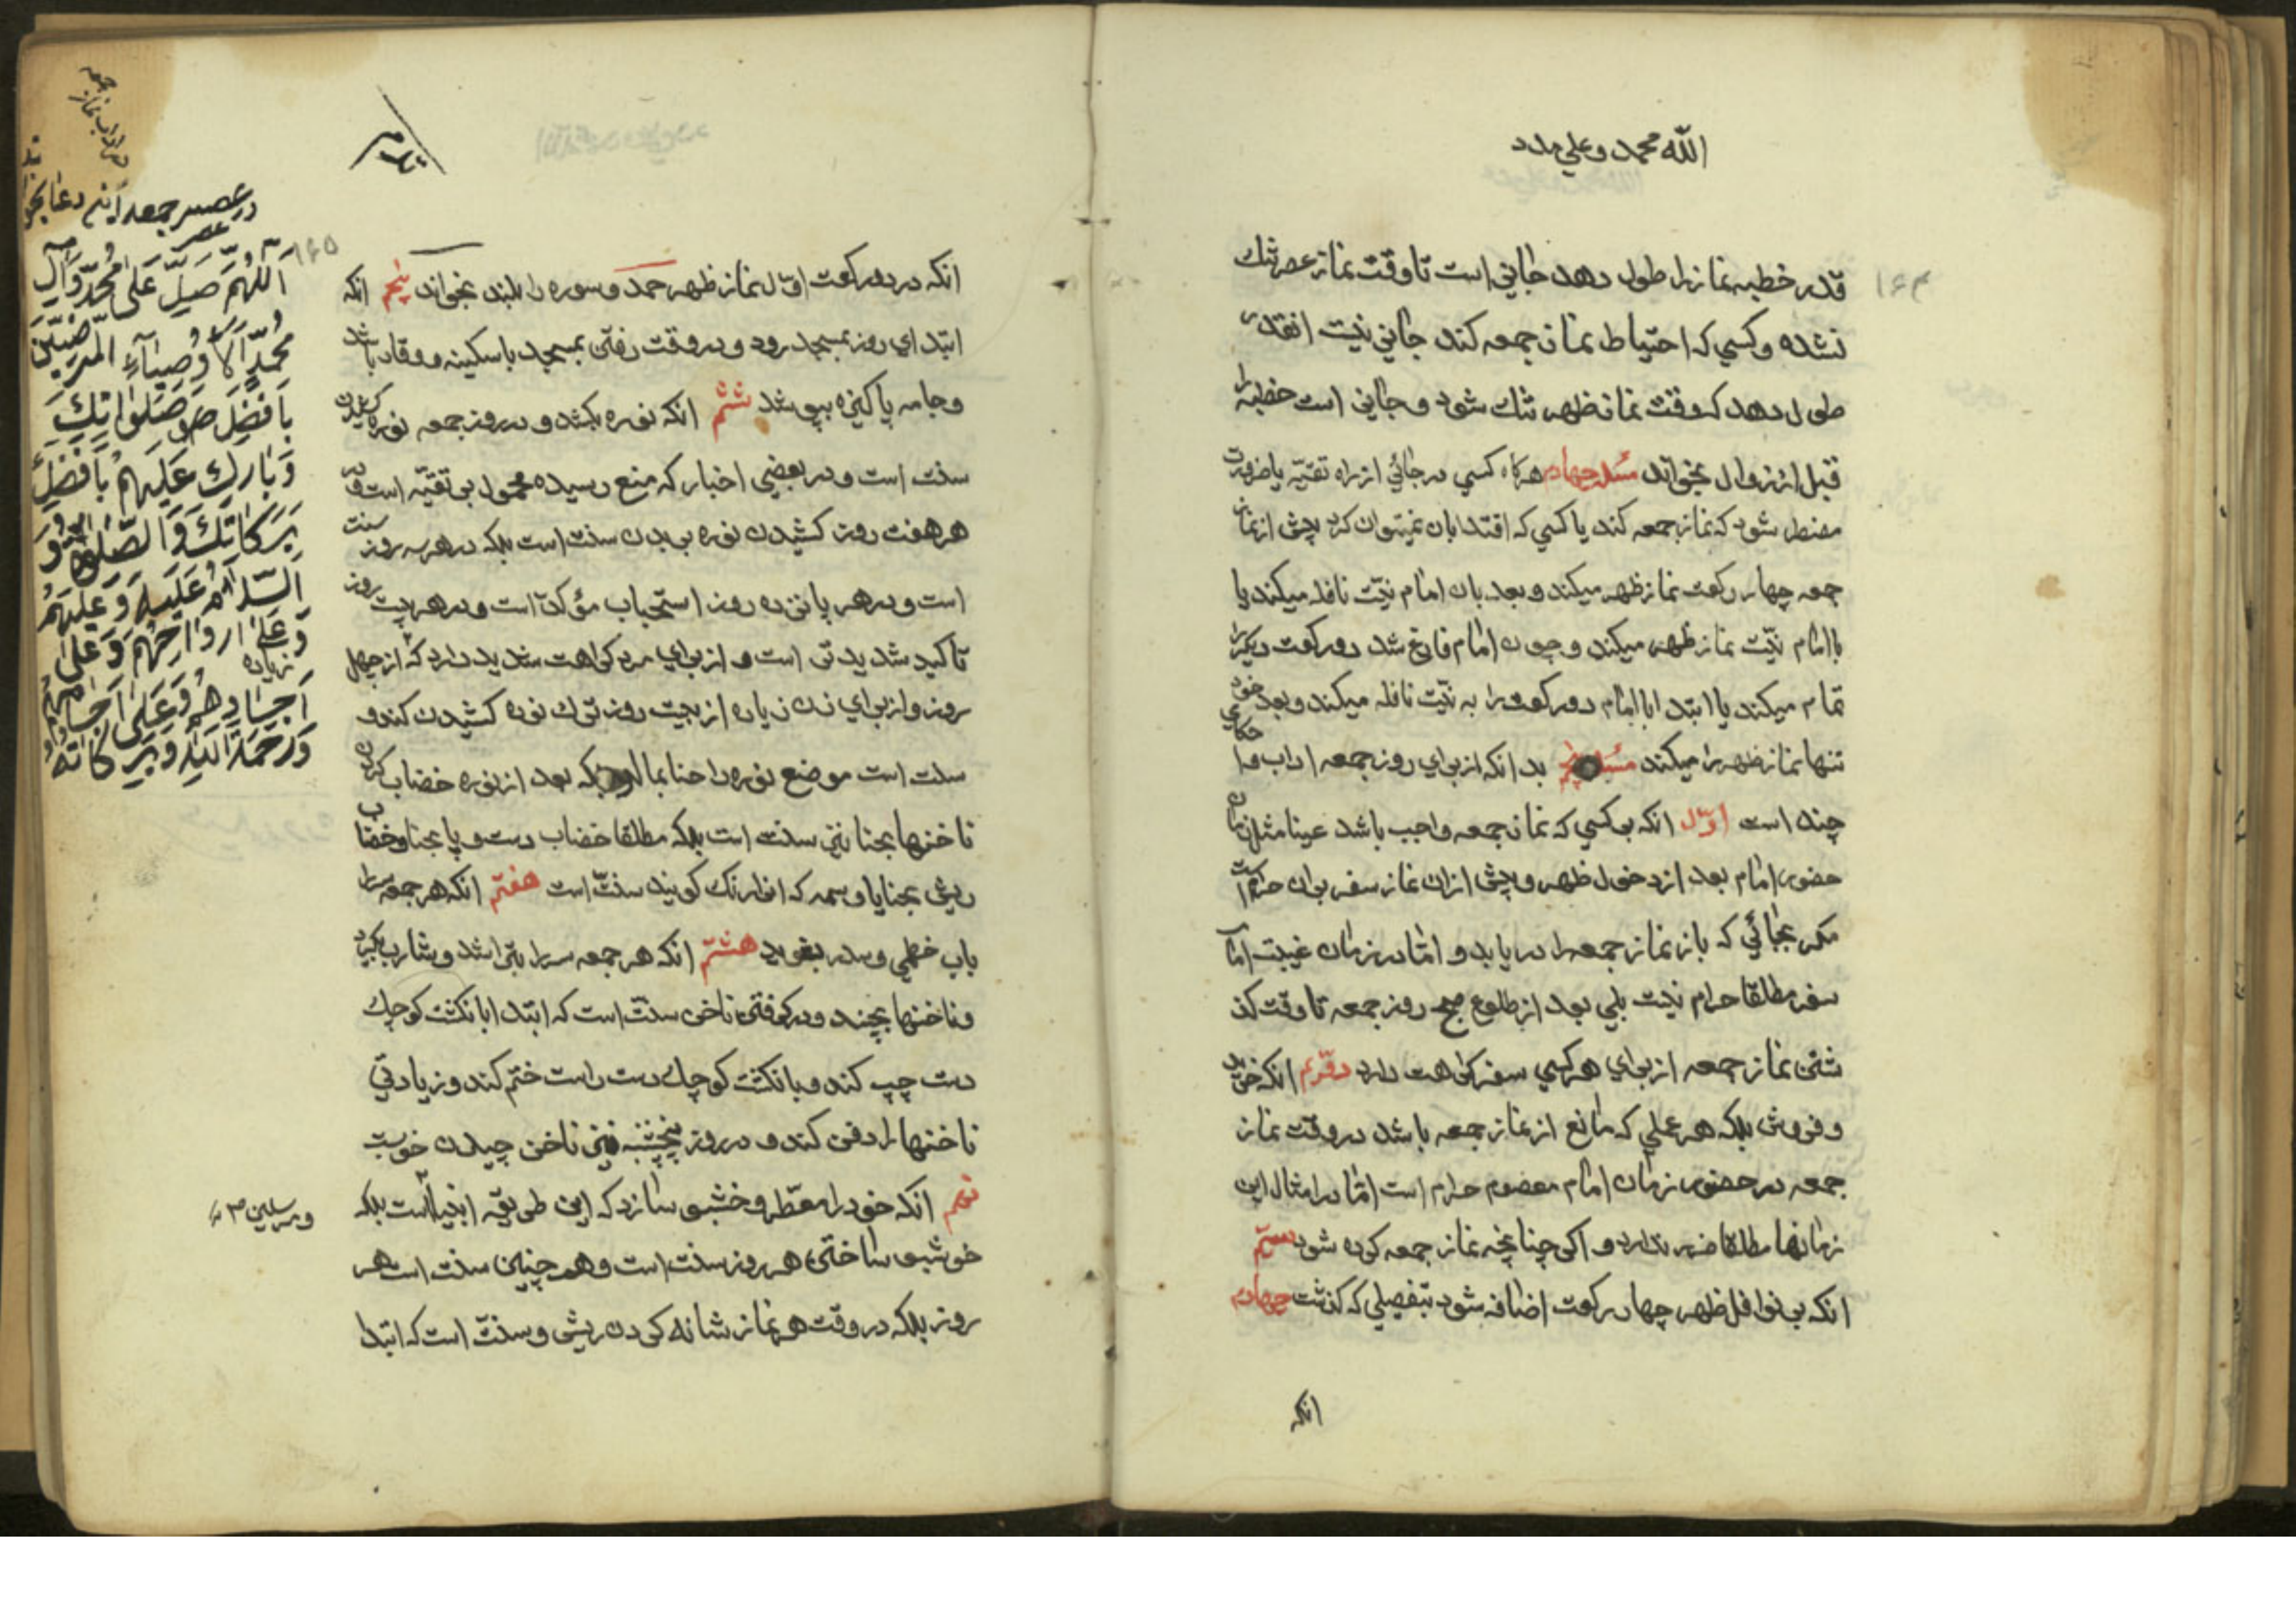 الله محمد و علي مدد
۱۶۴
قدر خطبه نماز را طول دهد جايز است تا وقت نماز عصر تنك
نشده و كسي كه احتياط نماز جمعه كند جايز نيست انقدر
طول دهد كه وقت نماز ظهر تنك شود و جايز است خطبه را
قبل از زوال بخواند مسئله چهارم هركاه كسي در جائي از راه تقيّه يا ضرورت
مضطر شود كه نماز جمعه كند يا كسي كه اقتدا بان نميتوان كرد پيش از نماز
جمعه چهار ركعت نماز ظهر ميكند و بعد بان امام نيّت نافله ميكند يا
با امام نيّت نماز ظهر ميكند و چون امام فارغ شد دو ركعت ديكر را
تمام ميكند يا ابتدا با امام دو ركعت را به نيّت نافله ميكند و بعد خود
تنها نماز ظهر را ميكند مسئله پنجم بدانكه از براي روز جمعه اداب و احكامي
چند است اوّل انكه بر كسي كه نماز جمعه واجب باشد عينا مثل زمان
حضور امام بعد از دخول ظهر و پيش ازان نماز سفر بران حرام است
مكر بجائي كه باز نماز جمعه را دريابد و امّا در زمان غيبت امام
سفر مطلقا حرام نيست بلي بعد از طلوع صبح روز جمعه تا وقت كذ
شتن نماز جمعه از براي هر كسي سفر كراهت دارد دوّيم انكه خريد
و فروش بلكه هر عملي كه مانع از نماز جمعه باشد در وقت نماز
جمعه در حضور زمان امام معصوم حرام است امّا در امثال اين
زمانها مطلقا ضرر ندارد و اكر چنانچه نماز جمعه كرده شود سيّم
انكه بر نوافل ظهر چهار ركعت اضافه شود بتفصيلي كه كذشت چهارم
انكه
۱۶۵
انكه در دو ركعت اوّل نماز ظهر حمد و سوره را بلند بخواند پنجم انكه
ابتداي روز بمسجد رود و در وقت رفتن بمسجد با سكينه و وقار باشد
و جامه پاكيزه بپوشد ششم انكه نوره بكشد و در روز جمعه نوره كشيدن
سنت است و در بعضي اخبار كه منع رسيده محمول بر تقيّه است و در
هر هفت روز كشيدن نوره بر بدن سنت است بلكه در هر سه روز سنت
است و در هر پانزده روز استحباب مؤكد است و در هر بيست روز
تاكيد شديدتر است و از براي مرد كراهت شديد دارد كه از چهل
روز و از براي زن زياده از بيست روز ترك نوره كشيدن كند و
سنت است موضع نوره را حنا بمالد بلكه بعد از نوره خضاب كردن
ناخنها بحنا نيز سنت است بلكه مطلقا خضاب دست و پا بحنا و خضاب
ريش بحنا يا وسمه كه انرا رنك كويند سنّت است هفتم انكه هر جمعه سر را
باب خطمي و سدر بشويد هشتم انكه هر جمعه سر را بتراشد و شارب بكيرد
و ناخنها بچيند و در كرفتن ناخن سنّت است كه ابتدا بانكشت كوچك
دست چپ كند و بانكشت كوچك دست راست ختم كند و زيادتي
ناخنها را دفن كند و در روز پنجشنبه نيز ناخن چيدن خوبست
نهم انكه خود را معطّر و خشبو سازد كه اين طريقه انبيا است بلكه
خوشبو ساختن هر روز سنت است و همچنين سنت است هر
روز بلكه در وقت هر نماز شانه كردن ريش و سنّت است كه ابتدا
در اداب نماز جمعه
در عصر جمعه اين دعا بخو
عصر
اَللّهُمَّ صَلِّ عَلى مُحَمَّدٍ وَآلِ
مُحَمَّدٍ الْاَوْصِيآءِ الْمَرْضِيّينَ
بِاَفْضَلِ صَلَواتِكَ
وَبارِكْ عَلَيْهِمْ بِاَفْضَلِ
بَرَكاتِكَ وَالصَّلوةُ وَ
السَّلامُ عَلَيْهِ وَعَلَيْهِمْ
وَعَلى ارواحِهِمْ وَعَلى
زياده
اَجْسادِهِمْ وَعَلى اَجْسامِهِمْ
وَرَحْمَةُ اللهِ وَبَرَكاتُهُ
و مرسلين